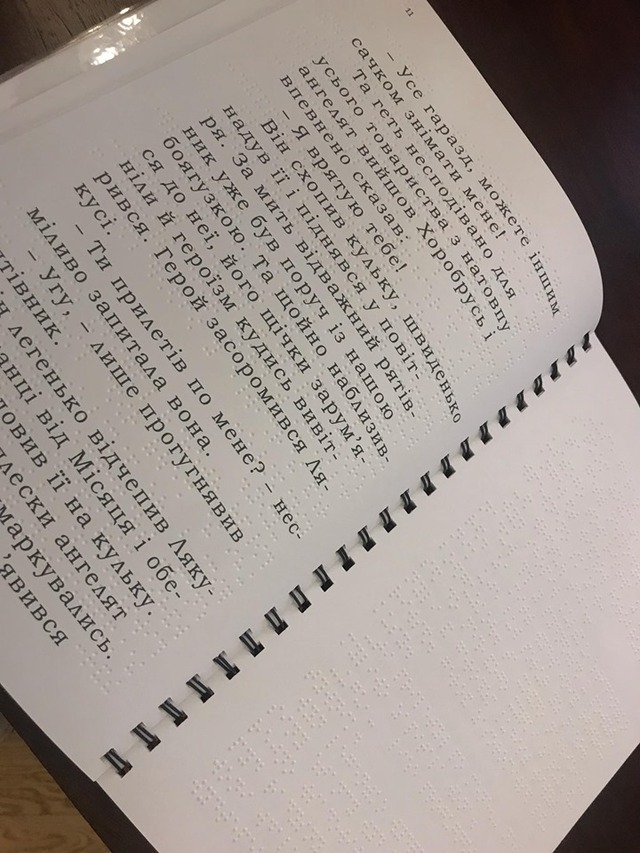 – Усе гаразд, можете іншим
сачком знімати мене!
Та геть несподівано для
усього товариства з натовпу
ангелят вийшов Хоробрусь і
впевнено сказав:
– Я врятую тебе!
Він схопив кульку, швиденько
надув її і піднявся у повіт-
ря. За мить відважний рятів-
ник уже був поруч із нашою
боягузкою. Та щойно наблизив-
ся до неї, його щічки зарум’я-
ніли й героїзм кудись вивіт-
рився. Герой засоромився Ля-
кусі.
– Ти прилетів по мене? – нес-
міливо запитала вона.
– Угу, – лише прогугнявив
легенько відчепив Ляку-
від Місяця і обе-
її на кульку.
ангелят
’явився